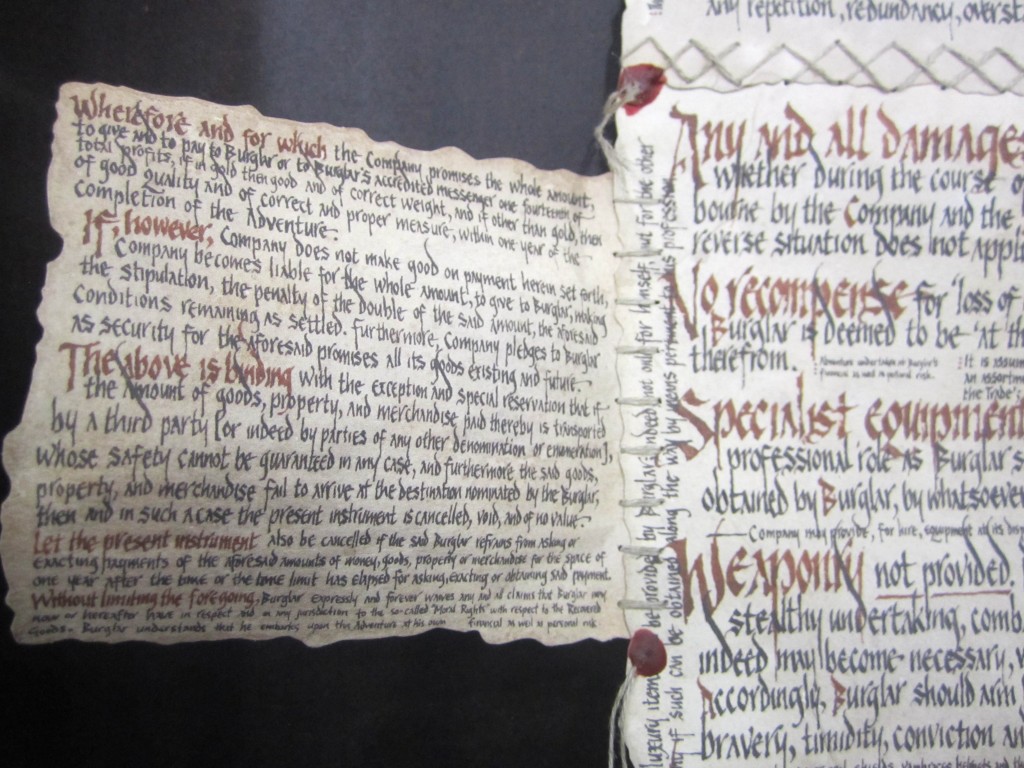 Wherefore and for which the Company promises the whole amount,
to give and to pay to Burglar or to Burglar's accredited messenger one fourteenth of
total profits, if in gold then good and of correct weight, and if other than gold, then
of good quality and of correct and proper measure, within one year of the
completion of the Adventure.
If, however, Company does not make good on payment herein set forth,
Company becomes liable for the whole amount, to give to Burglar, making
the stipulation, the penalty of the double of the said amount, the aforesaid
conditions remaining as settled. Furthermore, Company pledges to Burglar
as security for the aforesaid promises all its goods existing and future.
The above is binding with the exception and special reservation that if
the amount of goods, property, and merchandise paid thereby is transported
by a third party [or indeed by parties of any other denomination or enumeration],
whose safety cannot be guaranteed in any case, and furthermore the said goods,
property, and merchandise fail to arrive at the destination nominated by the Burglar,
then and in such a case the present instrument is cancelled, void, and of no value.
Let the present instrument also be cancelled if the said Burglar refrains from asking or
exacting payments of the aforesaid amounts of money, goods, property or merchandise for the space of
one year after the time or the time limit has elapsed for asking, exacting or obtaining said payment.
Without limiting the foregoing, Burglar expressly and forever waives any and all claims that Burglar may
now or hereafter have in respect and in any jurisdiction to the so-called 'Moral Rights' with respect to the Recovered
Goods. Burglar understands that he embarks upon the Adventure at his own financial as well as personal risk.
any repetition, redundancy, overst
Any and all damage
whether during the course o
bourne by the Company and the
reverse situation does not appl
No recompense for 'loss of
Burglar is deemed to be 'at th
therefrom.
Adventure undertaken at Burglar's
financial as well as personal risk.
It is assum
an assortm
the Trade's
Specialist equipment
professional role as Burglar s
obtained by Burglar, by whatsoever
Company may provide, for hire, equipment at its
Weaponry not provided.
stealthy undertaking, comb
indeed may become necessary,
Accordingly, Burglar should arm
bravery, timidity, conviction an
luxury item be provided by Burglar indeed not only for himself, but for the other
if such can be obtained along the way by means pertinent to his profession.